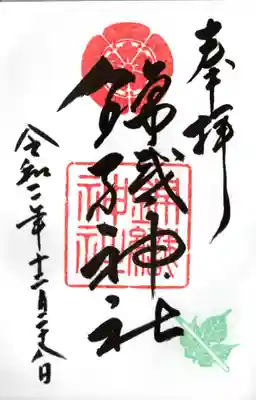 奉拝
錦織神社
令和二年十一月二十八日
錦織
神社